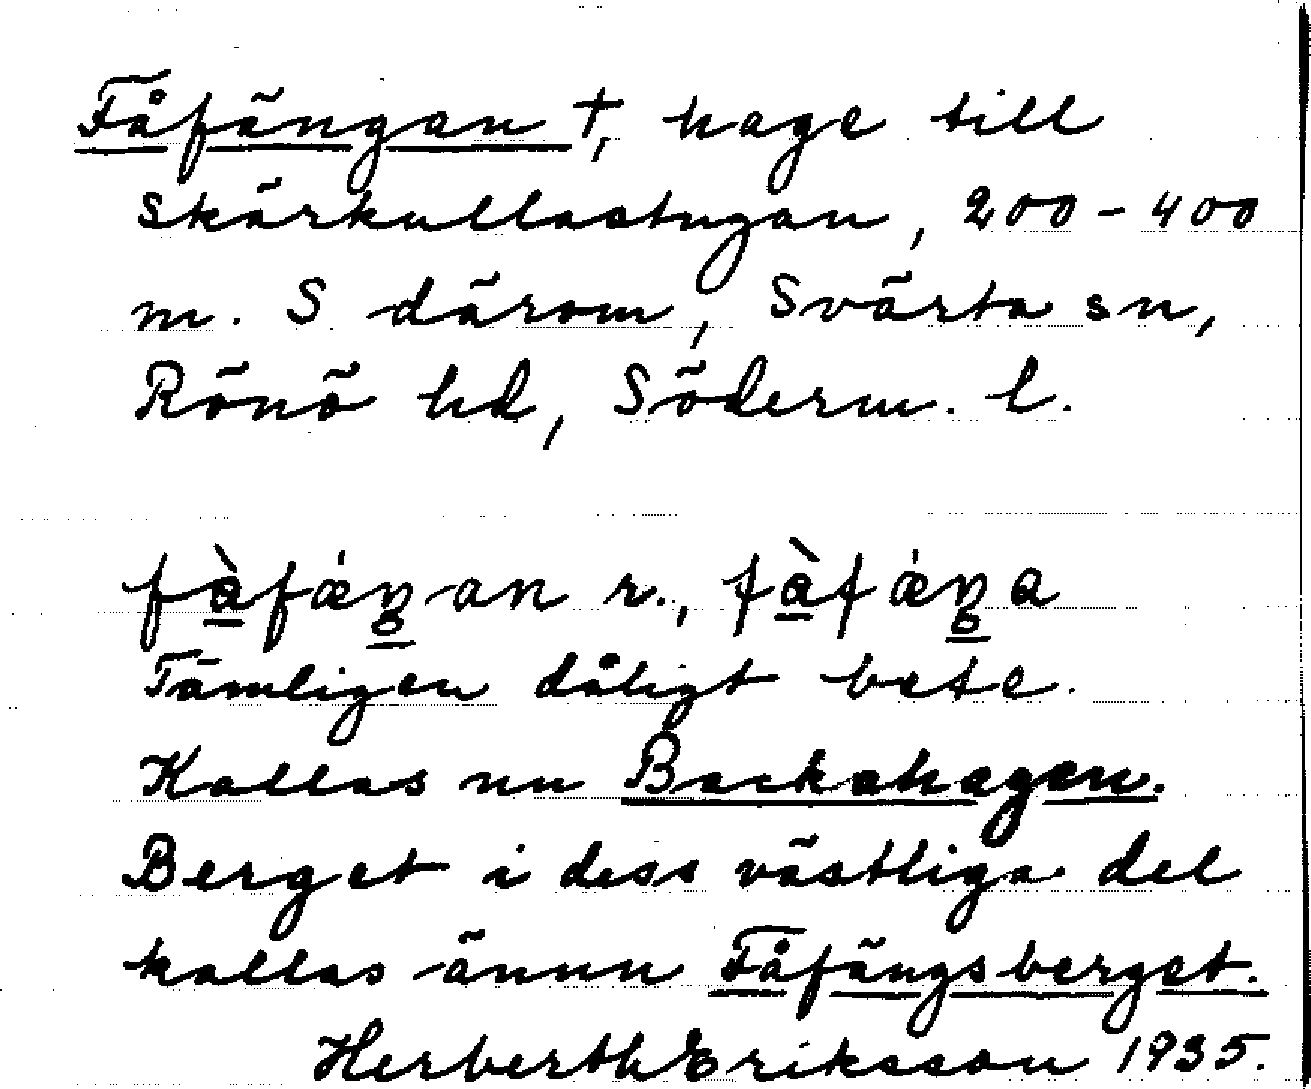 Fåfängan †, hage till
Skärkullastugan, 200-400
m. S därom, Svärta sn,
Rönö hd, Söderm. l.
fàfǽŋan r., fàfǽŋa
Tämligen dåligt bete.
Kallas nu Backahagen.
Berget i dess västliga del
kallas ännu Fåfängsberget.
Herberth Eriksson 1935.